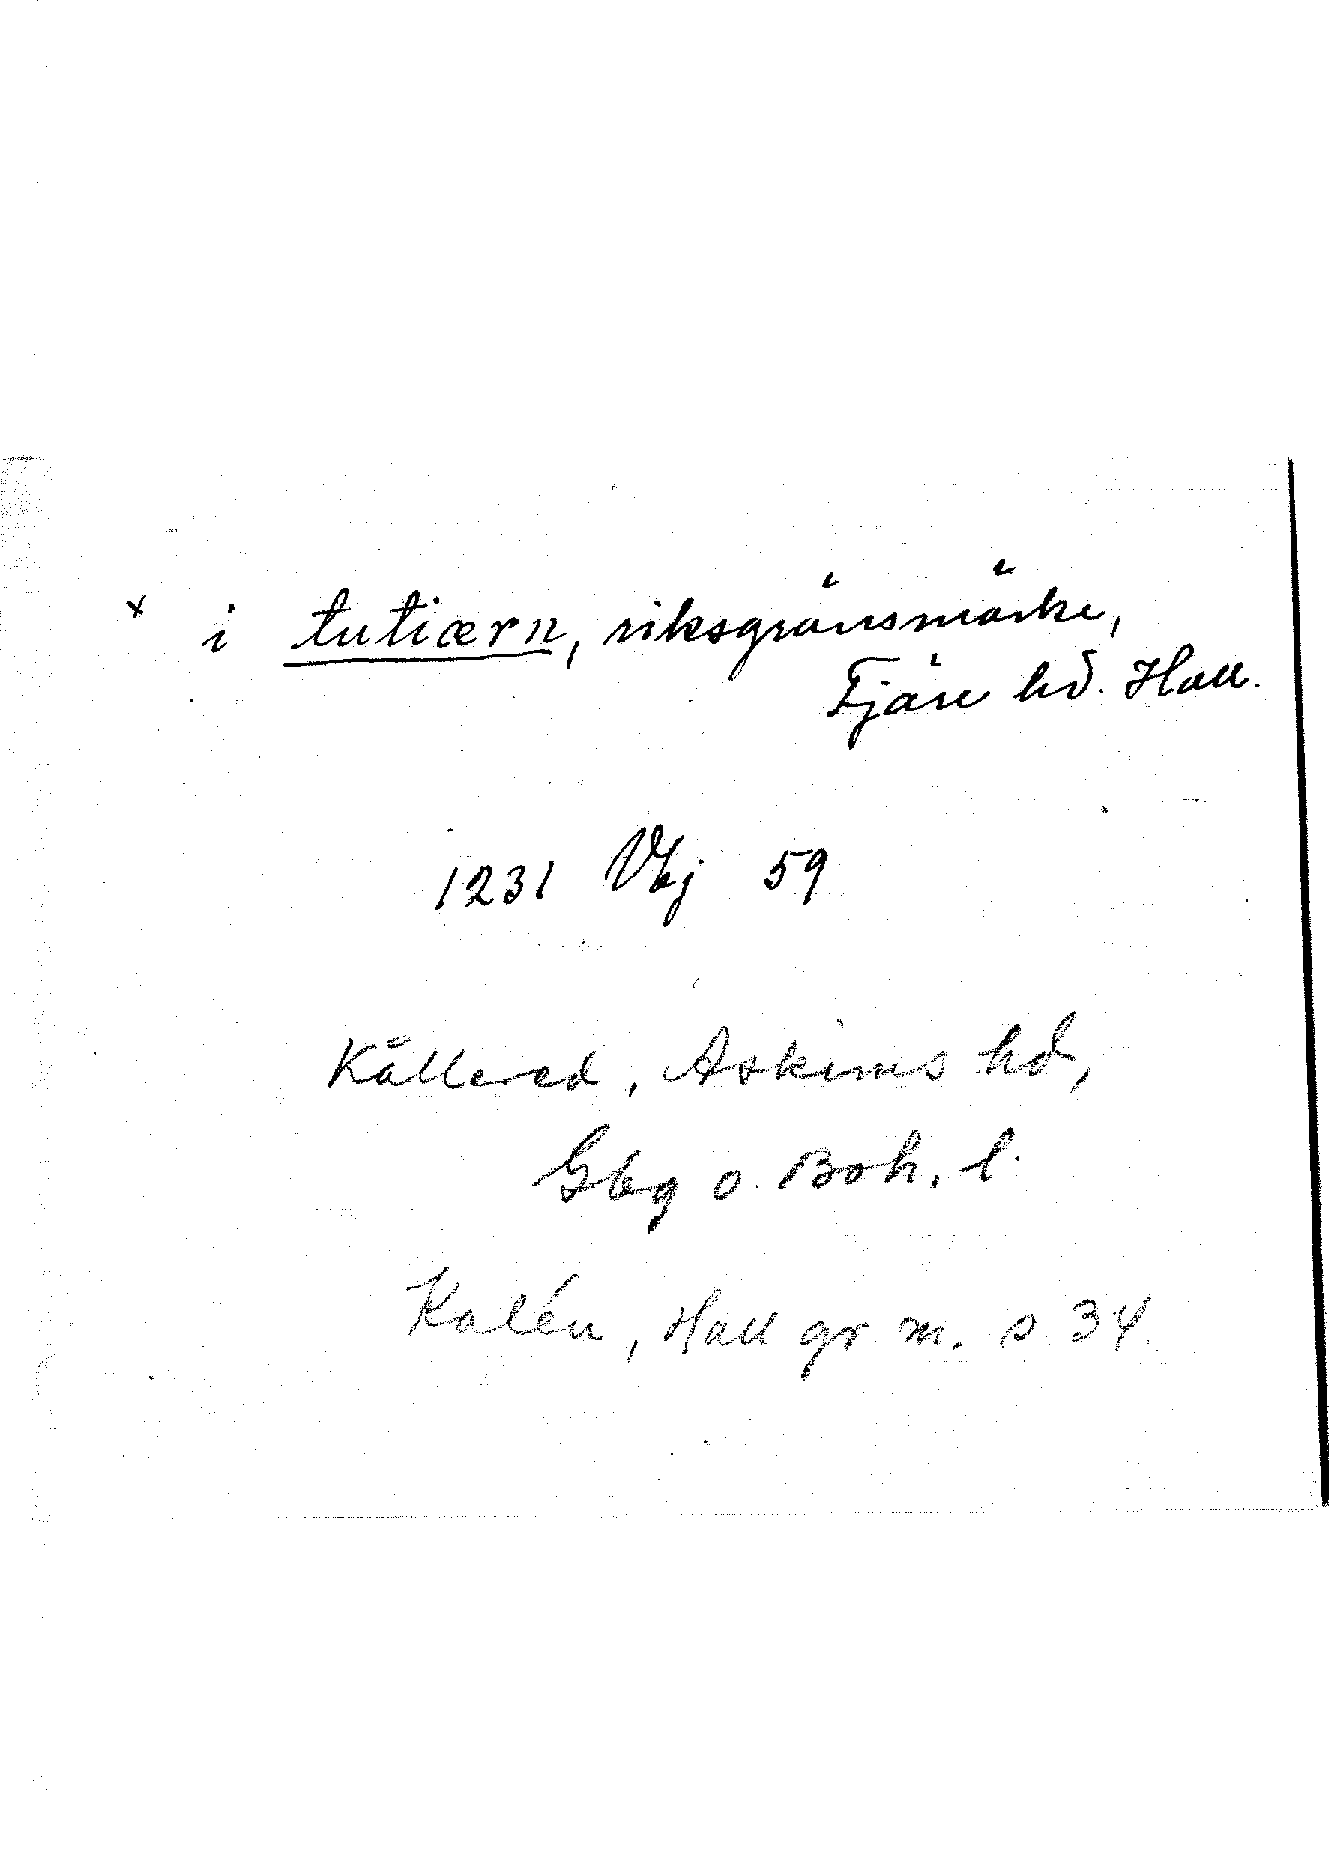 x i tutiærn, riksgränsmärke,
Fjäre hd. Hall.
1231 Vbj 59
Kållered, Askims hd,
Gbg o. Boh. l.
Kalén, Hall gr m. s 34.